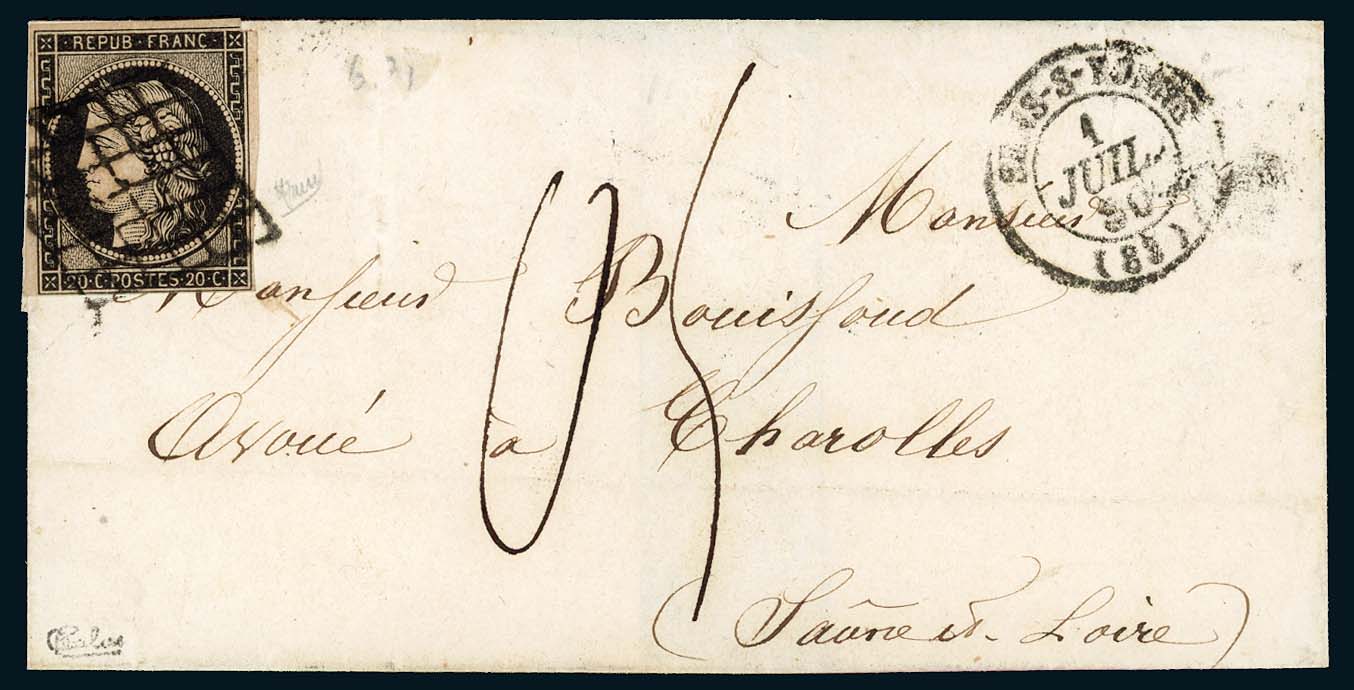 REPUB·FRANC·
20·C·POSTES·20·C·
1
JUIL.
50
(88)
Monsieur
Monsieur Bouissoud
Avoué à Charolles
(Saône et Loire)